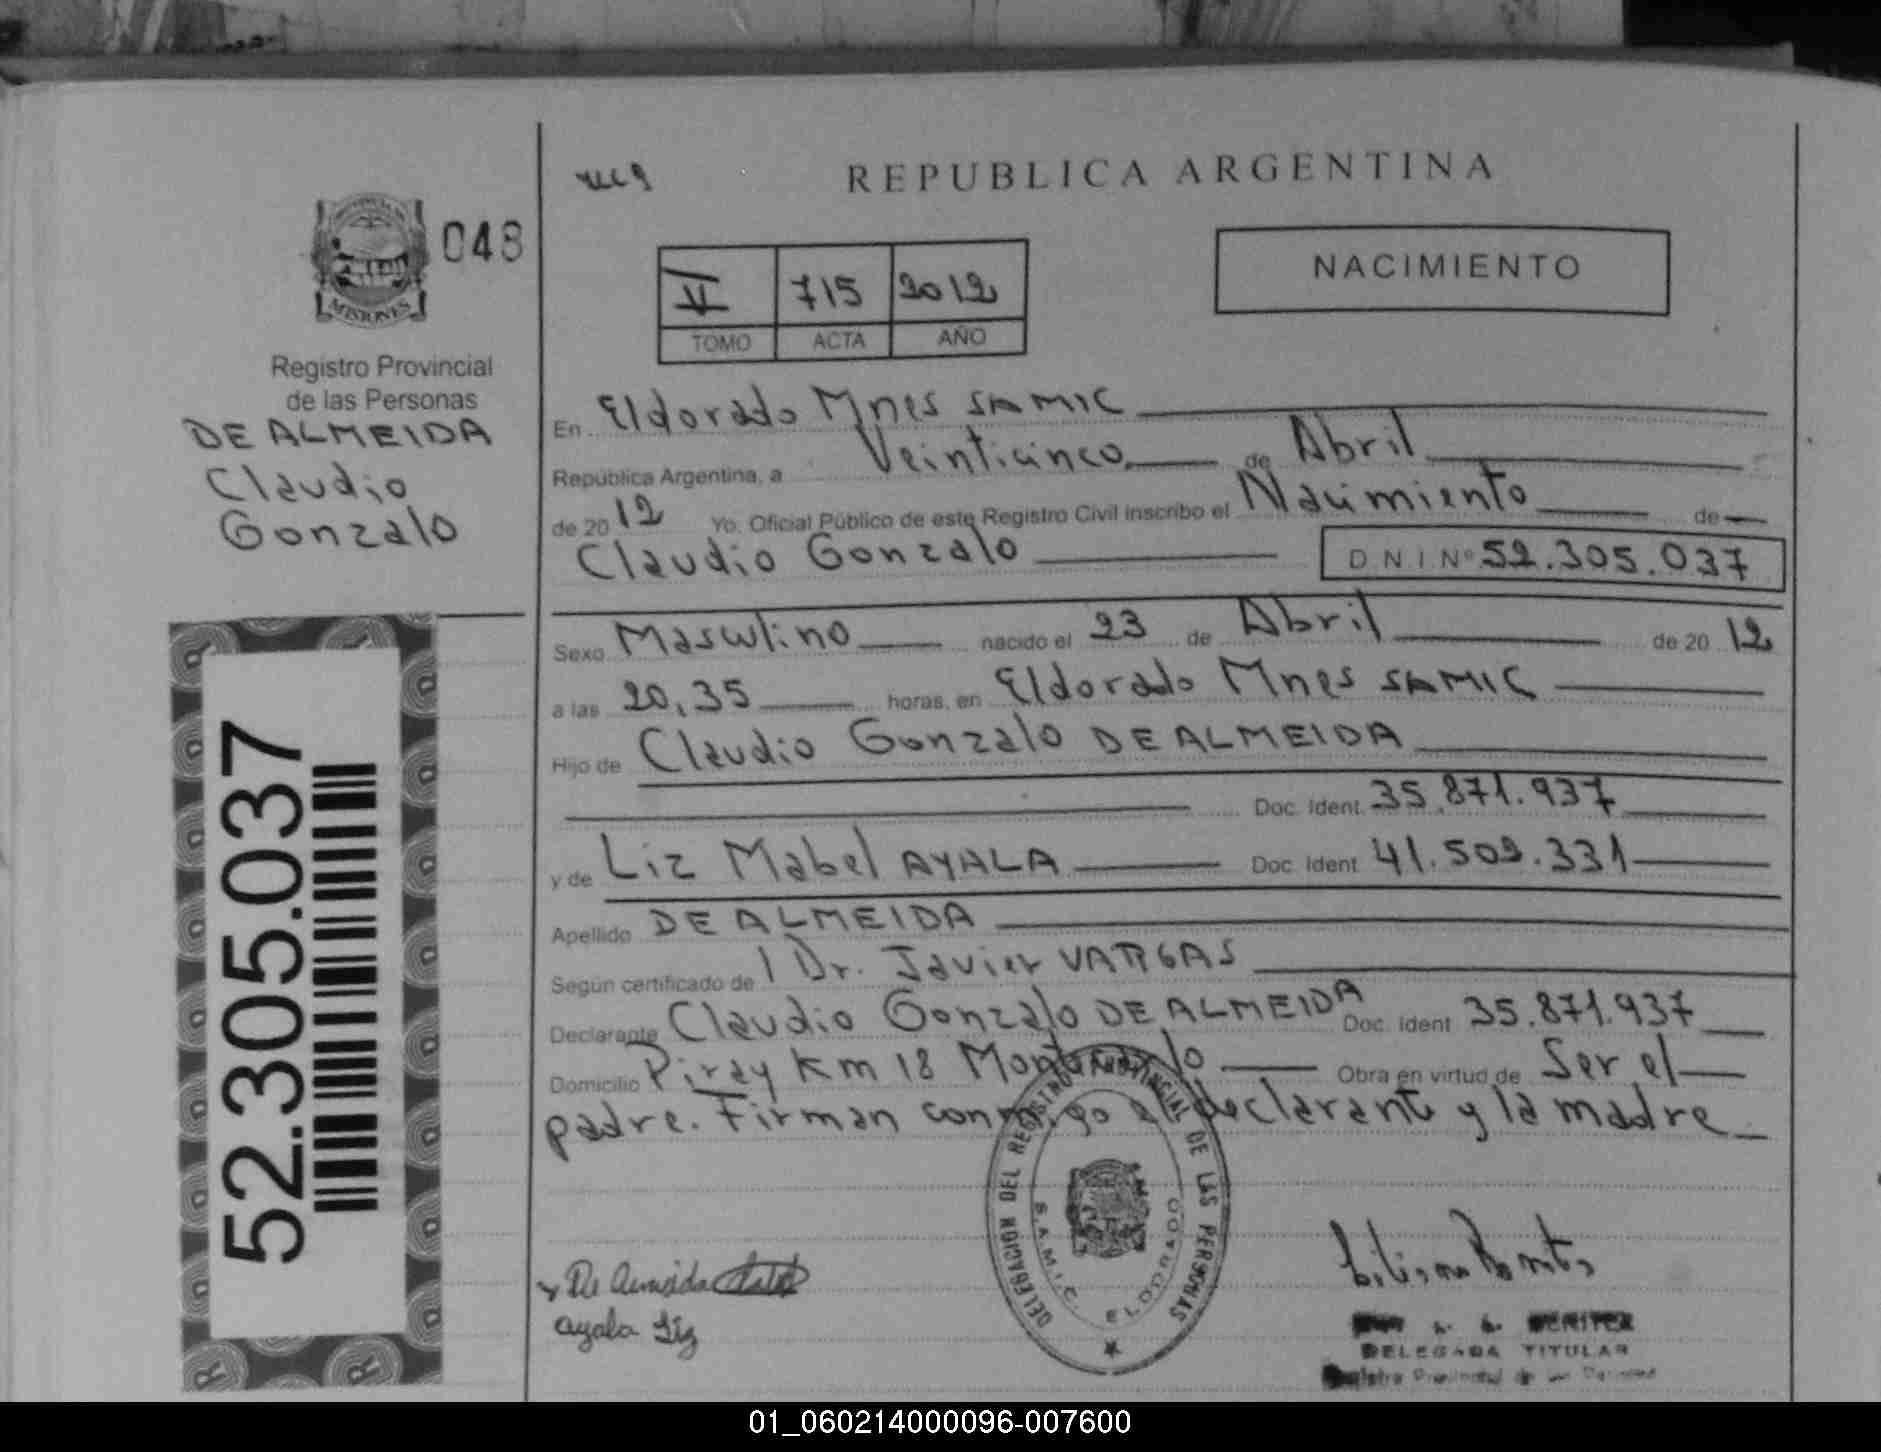 REPUBLICA ARGENTINA
MISIONES
048
Registro Provincial
de las Personas
DE ALMEIDA
Claudio
Gonzalo
52.305.037
II 715 2012
TOMO ACTA AÑO
NACIMIENTO
En Eldorado Mnes SAMIC
República Argentina, a Veinticinco de Abril
de 2012 Yo, Oficial Público de este Registro Civil inscribo el Nacimiento de
Claudio Gonzalo D.N.I.Nº 52.305.037
Sexo Masculino nacido el 23 de Abril de 2012
a las 20,35 horas, en Eldorado Mnes SAMIC
Hijo de Claudio Gonzalo DE ALMEIDA
Doc. Ident. 35.871.937
y de Liz Mabel AYALA Doc. Ident 41.509.331
Apellido DE ALMEIDA
Según certificado de l Dr. Javier VARGAS
Declarante Claudio Gonzalo DE ALMEIDA Doc. Ident 35.871.937
Domicilio Piray Km 18 Montecarlo Obra en virtud de Ser el
padre. Firman conmigo el declarante y la madre
DELEGACION DEL REGISTRO PROVINCIAL DE LAS PERSONAS
S.A.M.I.C. ELDORADO
De Almeida
Ayala Liz
BENITEZ
DELEGADA TITULAR
Registro Provincial de las Personas
01_060214000096-007600